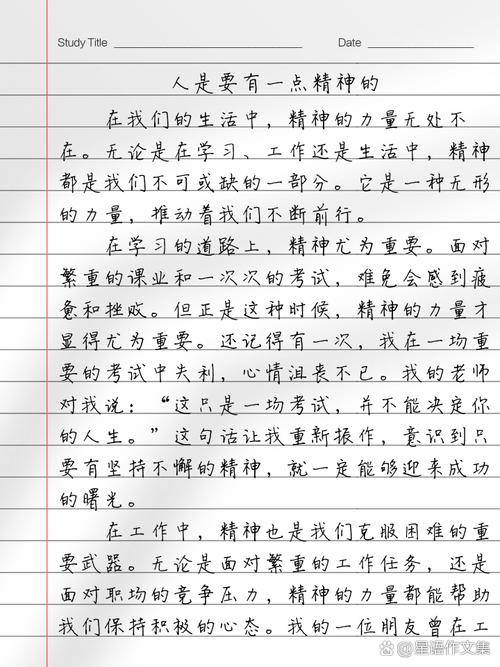 Study Title
Date
人是要有一点精神的
在我们的生活中，精神的力量无处不
在。无论是在学习、工作还是生活中，精神
都是我们不可或缺的一部分。它是一种无形
的力量，推动着我们不断前行。
在学习的道路上，精神尤为重要。面对
繁重的课业和一次次的考试，难免会感到疲
惫和挫败。但正是这种时候，精神的力量才
显得尤为重要。还记得有一次，我在一场重
要的考试中失利，心情沮丧不已。我的老师
对我说：“这只是一场考试，并不能决定你
的人生。”这句话让我重新振作，意识到只
要有坚持不懈的精神，就一定能够迎来成功
的曙光。
在工作中，精神也是我们克服困难的重
要武器。无论是面对繁重的工作任务，还是
面对职场的竞争压力，精神的力量都能帮助
我们保持积极的心态。我的一位朋友曾在工
@星语作文集